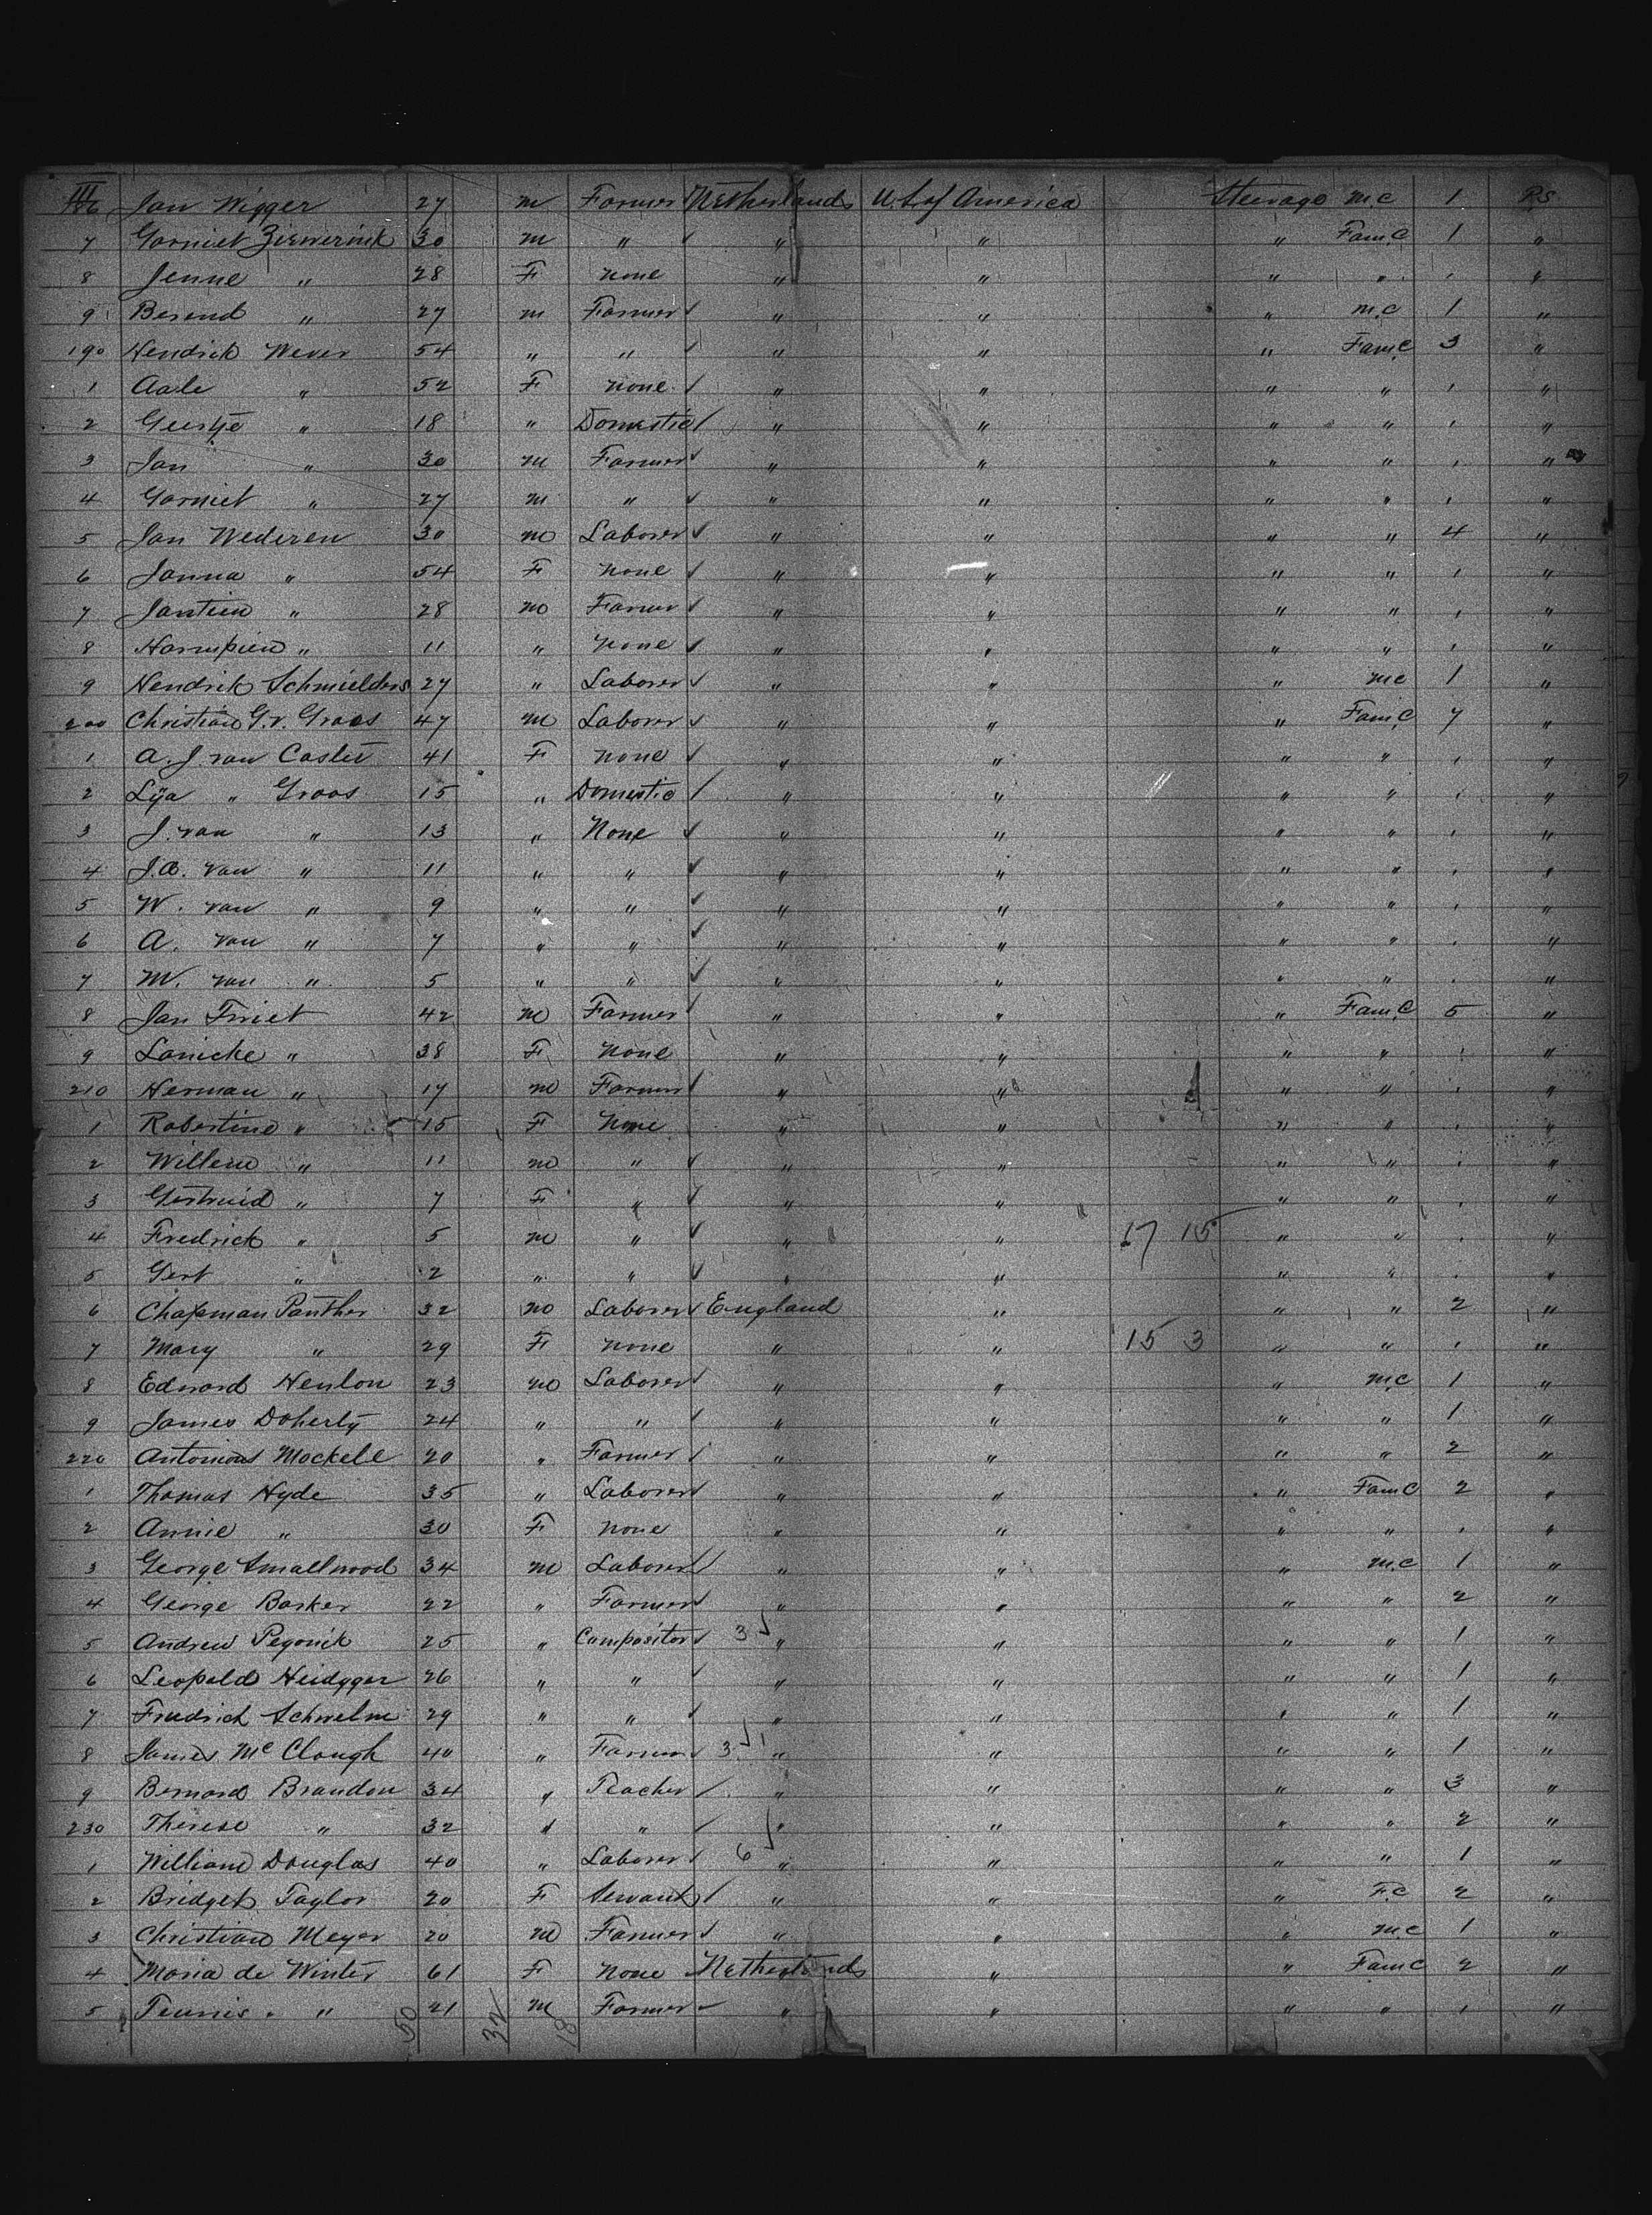 186 Jan Wigger 27 m Farmer Netherlands U.S. of America Steerage m.c 1 P.S
7 Garniet Zierverink 30 m " " " " Fam.C 1 "
8 Jenne " 28 F none " " " " , "
9 Berend " 27 m Farmer " " " m.c 1 "
190 Hendrick Wever 54 " " " " " Fam.C 3 "
1 Aale " 52 F none " " " " , "
2 Geertje " 18 " Domestic " " " " , "
3 Jan " 30 m Farmer " " " " , "
4 Garniet " 27 m " " " " " , "
5 Jan Wederen 30 m Laborer " " " " 4 "
6 Janna " 54 F none " " " " , "
7 Jantien " 28 m Farmer " " " " , "
8 Harmpien " 11 " none " " " " , "
9 Hendrik Schmielders 27 " Laborer " " " m.c 1 "
200 Christian G.v. Graas 47 m Laborer " " " Fam.C 7 "
1 A. J. van Caster 41 F none " " " " , "
2 Lija " Graas 15 " Domestic " " " " , "
3 J. van " 13 " None " " " " , "
4 J.A. van " 11 " " " " " " , "
5 W. van " 9 " " " " " " , "
6 A. van " 7 " " " " " " , "
7 M. van " 5 " " " " " " , "
8 Jan Friet 42 m Farmer " " " Fam.C 5 "
9 Lanicke " 38 F none " " " " , "
210 Herman " 17 m Farmer " " " " , "
1 Robertine " 15 F None " " " " , "
2 Willem " 11 m " " " " " , "
3 Gertruid " 7 F " " " " " , "
4 Fredrick " 5 m " " " 17 15 " " , "
5 Gert " 2 " " " " " " , "
6 Chapman Panther 32 m Laborer England " " " 2 "
7 Mary " 29 F none " " 15 3 " " , "
8 Edward Henlon 23 m Laborer " " " m.c 1 "
9 James Doherty 24 " " " " " " 1 "
220 Antonious Mockele 20 " Farmer " " " " 2 "
1 Thomas Hyde 35 " Laborer " " " Fam C 2 "
2 Annie " 30 F none " " " " , "
3 George Smallwood 34 m Laborer " " " m.c 1 "
4 George Barker 22 " Farmer " " " " 2 "
5 Andrew Pegonik 25 " Compositor 3 " " " " 1 "
6 Leopold Heidgger 26 " " " " " " 1 "
7 Fredrich Schwelm 29 " " " " " " 1 "
8 James McClough 40 " Farmer 3 " " " " 1 "
9 Bernard Brandon 34 " Teacher " " " " 3 "
230 Therese " 32 " " " " " " 2 "
1 William Douglas 40 " Laborer 6 " " " " 1 "
2 Bridget Taylor 20 F Servant " " " F.C 2 "
3 Christian Meyer 20 m Farmer " " " m.c 1 "
4 Maria de Winter 61 F none Netherlands " " Fam C 2 "
5 Teunis " " 21 m Farmer " " " " , "
50 32 18